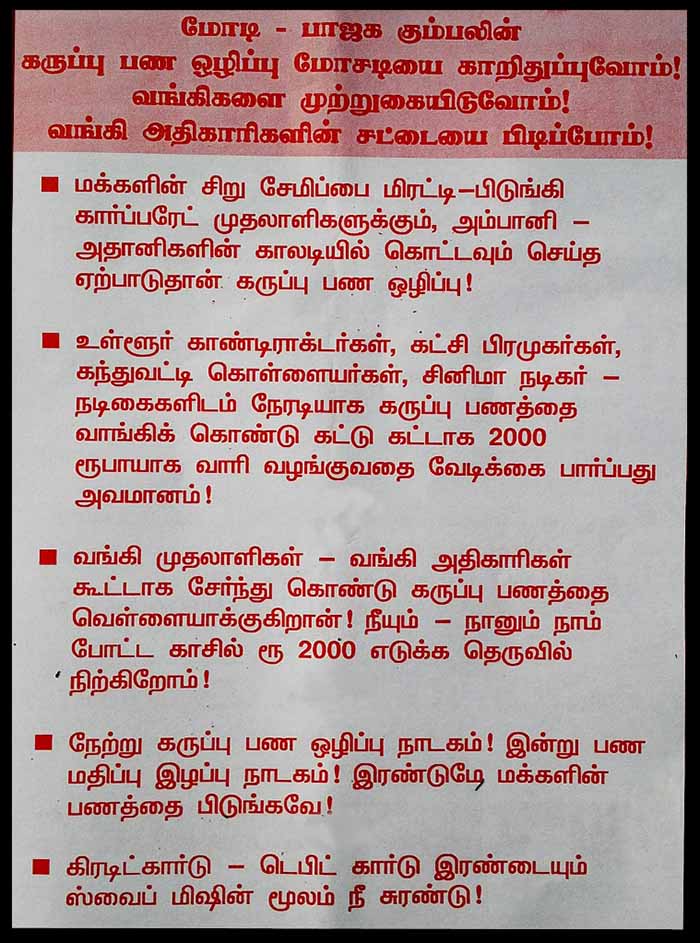 மோடி - பாஜக கும்பலின்
கருப்பு பண ஒழிப்பு மோசடியை காறிதுப்புவோம்!
வங்கிகளை முற்றுகையிடுவோம்!
வங்கி அதிகாரிகளின் சட்டையை பிடிப்போம்!
■ மக்களின் சிறு சேமிப்பை மிரட்டி–பிடுங்கி
கார்ப்பரேட் முதலாளிகளுக்கும், அம்பானி –
அதானிகளின் காலடியில் கொட்டவும் செய்த
ஏற்பாடுதான் கருப்பு பண ஒழிப்பு!
■ உள்ளூர் காண்டிராக்டர்கள், கட்சி பிரமுகர்கள்,
கந்துவட்டி கொள்ளையர்கள், சினிமா நடிகர் –
நடிகைகளிடம் நேரடியாக கருப்பு பணத்தை
வாங்கிக் கொண்டு கட்டு கட்டாக 2000
ரூபாயாக வாரி வழங்குவதை வேடிக்கை பார்ப்பது
அவமானம்!
■ வங்கி முதலாளிகள் – வங்கி அதிகாரிகள்
கூட்டாக சேர்ந்து கொண்டு கருப்பு பணத்தை
வெள்ளையாக்குகிறான்! நீயும் – நானும் நாம்
போட்ட காசில் ரூ 2000 எடுக்க தெருவில்
நிற்கிறோம்!
■ நேற்று கருப்பு பண ஒழிப்பு நாடகம்! இன்று பண
மதிப்பு இழப்பு நாடகம்! இரண்டுமே மக்களின்
பணத்தை பிடுங்கவே!
■ கிரடிட்கார்டு – டெபிட் கார்டு இரண்டையும்
ஸ்வைப் மிஷின் மூலம் நீ சுரண்டு!